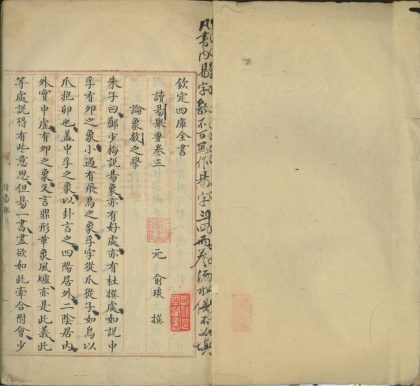 凡書內易字
欽定四庫全書
讀易舉要卷三
元 俞琰 撰
論象數之學
朱子曰鄭少梅說易象亦有好處亦有杜撰處如說中
孚有卵之象小過有飛鳥之象孚字從爪從子如鳥以
爪抱卵也蓋中孚之象以卦言之四陽居外二陰居內
外實中虛有卵之象又言鼎形革象風爐亦是此義此
等處說得有些意思但易一書盡欲如此牽合附會少